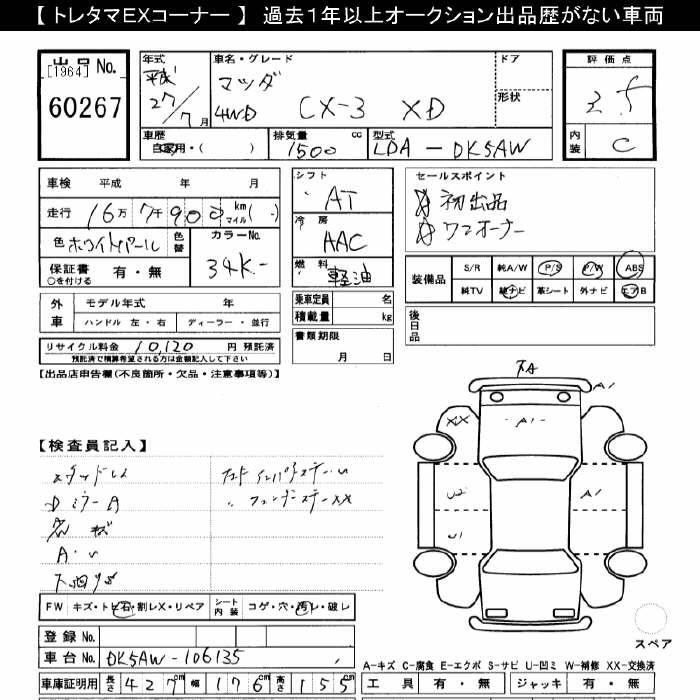 【 トレタマEXコーナー 】 過去1年以上オークション出品歴がない車両
出品 No.
[1964]
60267
年式 平成 27/7月
車名・グレード マツダ
4WD CX-3 XD
ドア
形状
評価点
3.5
内装 C
車歴 自家用・( )
排気量 1500 cc
型式 LDA - DK5AW
車検 平成 年 月
走行 16万7千90 km マイル( - )
色 ホワイトパール 色替 カラーNo. 34K-
保証書 有・無
○を付ける
シフト AT
冷房 AAC
燃料 軽油
セールスポイント
初出品
ワンオーナー
装備品 S/R 純A/W P/S P/W ABS
純TV 純ナビ 革シート 外ナビ エアB
外車 モデル年式 年
ハンドル 左・右 ディーラー・並行
乗車定員 名
積載量 kg
後日品
リサイクル料金 10,120 円 預託済
預託済で精算希望される方は金額記入して下さい
書類期限
月 日
【出品店申告欄(不良箇所・欠品・注意事項等)】
A1
XX -A1-
【検査員記入】
スタッドレス
DミラーA
A・U
U2 A1
U1
FW キズ・トビ石・割レX・リペア シート内装 コゲ・穴・汚レ・破レ
登録 No.
車台 No. DK5AW-106135
車庫証明用 長さ 427cm 幅 176cm 高さ 155cm
スペア
A-キズ C-腐食 E-エクボ S-サビ U-凹ミ W-補修 XX-交換済
工具 有・無 ジャッキ 有・無